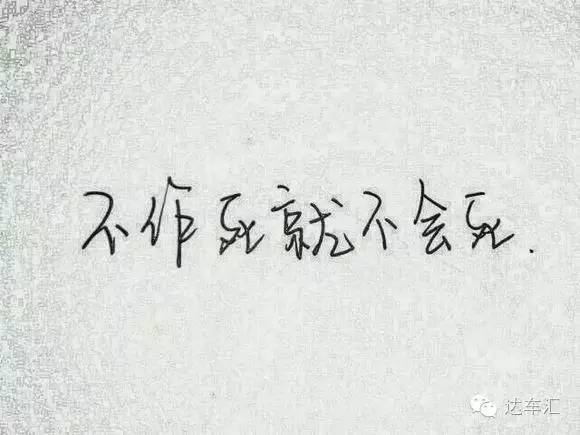 不作死就不会死.
达车汇